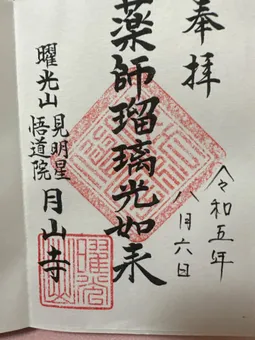 奉拝
令和五年
八月六日
薬師瑠璃光如来
曜光山
見明星
悟道院
月山寺